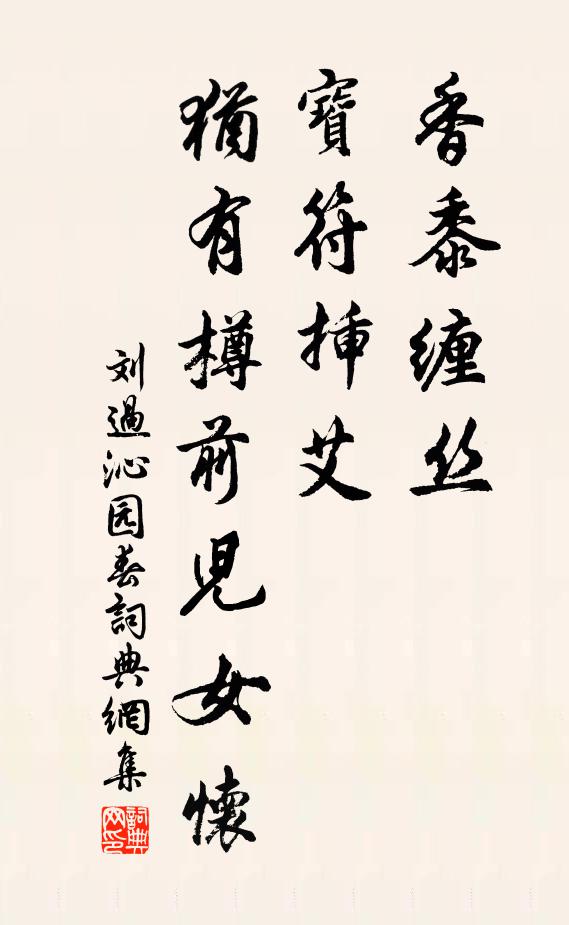 香黍缠丝
寶符插艾
猶有樽前兒女懷
刘過沁园春詞典網集
詞典网印